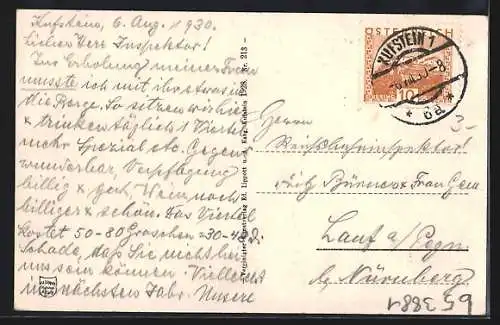 Kufstein, 6. Aug. 1930.
Lieber Herr Inspektor!
Zur Erholung meiner Frau
musste ich mit ihr etwas in
die Berge. So sitzen wir hier
& trinken täglich 1 Viertel
mehr Spezial etc. Gegend
wunderbar, Verpflegung
billig & gut, Wein noch
billiger & schön. Das Viertel
kostet 50-80 Groschen = 30-48 ₰.
Schade, daß Sie nicht bei
uns sein können. Vielleicht
im nächsten Jahr. Unsere
Vervielfältigungsverlag Ed. Lippott u. Karg, Kufstein 1928. Nr. 213
ÖSTERREICH
KUFSTEIN 1
10
* 6a *
3-
Herrn
Fritz & Frau Gem.
Lauf a/Pegn.
bg. Nürnberg
653881